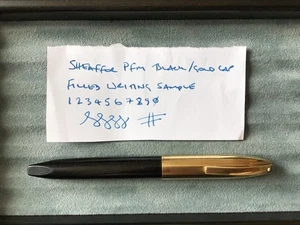 SHEAFFER PFM BLACK/GOLD CAP
FILLED WRITING SAMPLE
1234567890